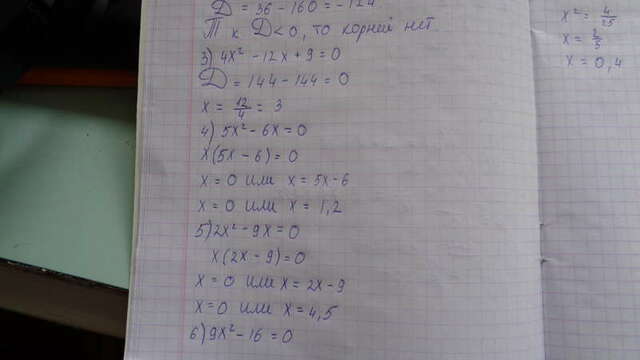 D = 36 - 160 = -124
Т к D < 0, то корней нет.
3) 4x² - 12x + 9 = 0
D = 144 - 144 = 0
x = 12/4 = 3
4) 5x² - 6x = 0
x(5x - 6) = 0
x = 0 или x = 5x - 6
x = 0 или x = 1,2
5) 2x² - 9x = 0
x(2x - 9) = 0
x = 0 или x = 2x - 9
x = 0 или x = 4,5
6) 9x² - 16 = 0
x² = 4/25
x = 2/5
x = 0,4